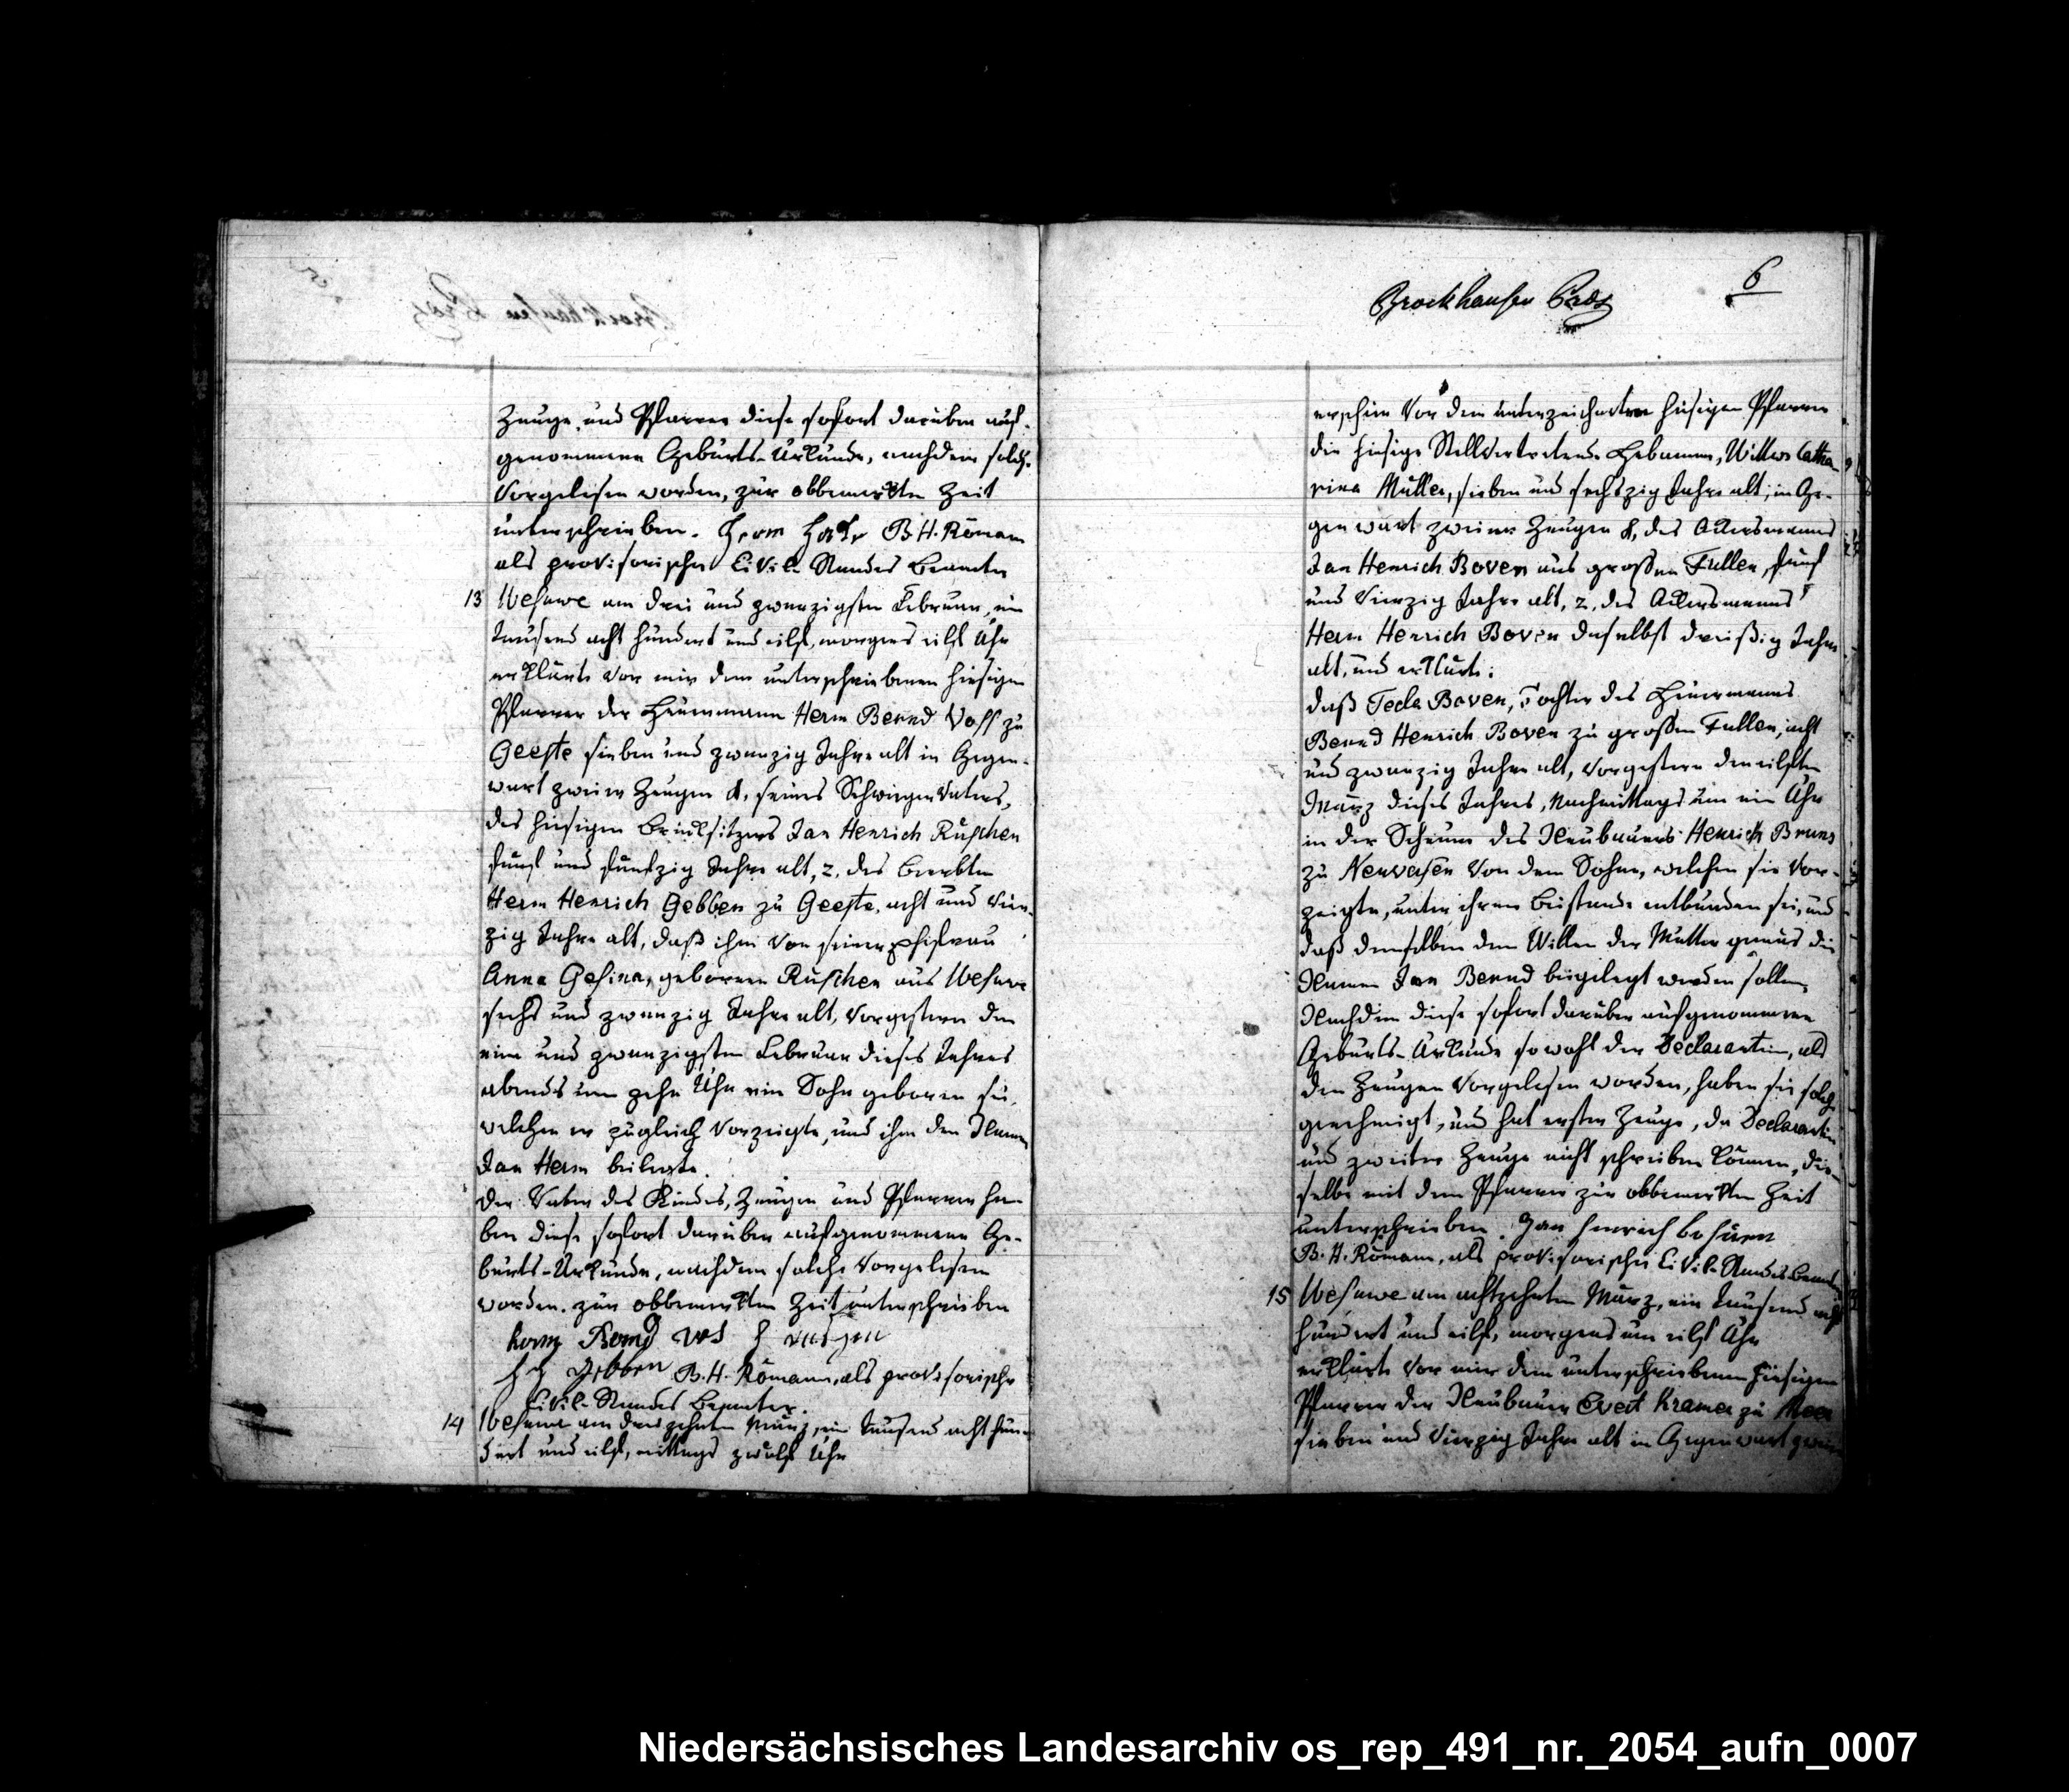 Zeuge und Pfarrer diese sofort darüber auf-
genommene Geburts-Urkunde, nachdem solche
vorgelesen worden, zur obbemerkten Zeit
unterschrieben. Herm B. H. Römann
als provisorischer Civil-Standes Beamter
13 Wesuwe am drei und zwanzigsten Februar, ein
tausend acht hundert und eilf, morgens eilf Uhr
erklärte vor mir dem unterschriebenen hiesigen
Pfarrer der Heuermann Herm Bernd Voss zu
Geeste sieben und zwanzig Jahre alt in Gegen-
wart zweier Zeugen 1, seines Schwiegervaters,
des hiesigen Brinksitzers Jan Henrich Rüschen
fünf und fünfzig Jahre alt, 2, des Beerbten
Herm Henrich Gebben zu Geeste, acht und vier-
zig Jahre alt, daß ihm von seiner Ehefrau
Anna Gesina, geborene Rüschen aus Wesuwe
sechs und zwanzig Jahre alt, vorgestern den
ein und zwanzigsten Februar dieses Jahres
abends um zehn Uhr ein Sohn geboren sei,
welchen er zugleich vorzeigte, und ihm den Namen
Jan Herm beilegte.
Der Vater des Kindes, Zeugen und Pfarrer ha-
ben diese sofort darüber aufgenommene Ge-
burts-Urkunde, nachdem solche vorgelesen
worden, zur obbemerkten Zeit unterschrieben
herm Bernd vos
Gebben B. H. Römann, als provisorischer
Civil-Standes Beamter.
14 Wesuwe am dreizehnten März, ein tausend acht hun-
dert und eilf, mittags zwölf Uhr
6
Brockhausen
erschien vor dem unterzeichneten hiesigen Pfarrer
die hiesige Stellvertretende Hebamme, Witwe Catha-
rina Müller, sieben und sechszig Jahre alt, in Ge-
genwart zweier Zeugen 1, des Ackersmanns
Jan Henrich Boven aus großen Fullen, fünf
und vierzig Jahre alt, 2, des Ackersmanns
Herm Henrich Boven daselbst dreißig Jahre
alt, und erklärte:
daß Tecla Boven, Tochter des Heuermanns
Bernd Henrich Boven zu großen Fullen, acht
und zwanzig Jahre alt, vorgestern den eilften
März dieses Jahres, Nachmittags um ein Uhr
in der Scheune des Neubauers Henrich Bruns
zu Neuversen von dem Sohne, welchen sie vor-
zeigte, unter ihrem Beistande entbunden sei, und
daß demselben dem Willen der Mutter gemäs die
Namen Jan Bernd beigelegt werden sollen,
Nachdem diese sofort darüber aufgenommene
Geburts-Urkunde sowohl der Declarantin, als
den Zeugen vorgelesen worden, haben sie solche
genehmigt, und hat erster Zeuge, da Declarantin
und zweiter Zeuge nicht schreiben können, die-
selbe mit dem Pfarrer zur obbemerkten Zeit
unterschrieben. Jan Henrich
B. H. Römann, als provisorischer Civil-Standes Beamter
15 Wesuwe am achtzehnten März, ein tausend acht
hundert und eilf, morgens um eilf Uhr
erklärte vor mir dem unterschriebenen hiesigen
Pfarrer der Neubauer Evert Kramer zu
sieben und vierzig Jahre alt in Gegenwart zweier
Niedersächsisches Landesarchiv os_rep_491_nr._2054_aufn_0007